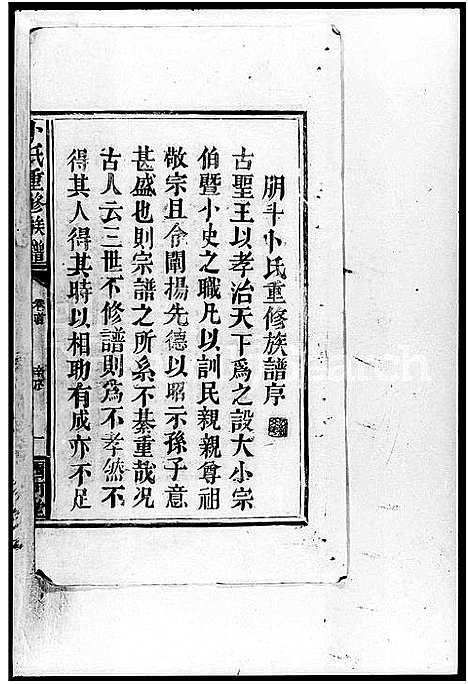 朋斗卜氏重修族譜序
古聖王以孝治天下爲之設大小宗
伯暨小史之職凡以訓民親親尊祖
敬宗且令闡揚先德以昭示孫子意
甚盛也則宗譜之所系不綦重哉况
古人云三世不修譜則爲不孝然不
得其人得其時以相助有成亦不足
卜氏重修族譜
卷首
一